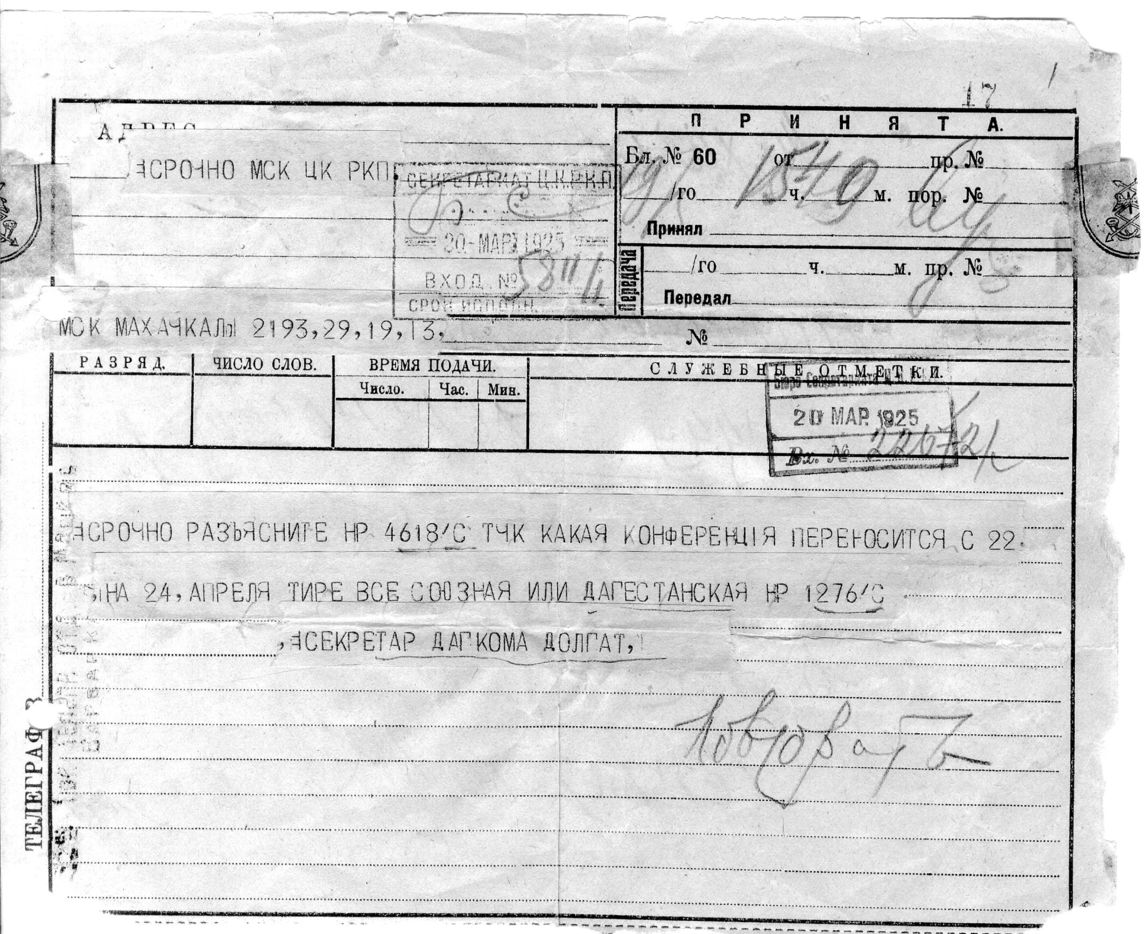 17
П Р И Н Я Т А.
АДРЕС
Бл. № 60 от пр. №
АСРОЧНО МСК ЦК РКП
СЕКРЕТАРИАТ Ц.К.Р.К.П.
19/го 15 ч. 40 м. пор. №
20 МАР 1925
Принял
ВХОД. № 5811/
СРОК ИСПОЛН.
Передача
/го ч. м. пр. №
Передал
МСК МАХАЧКАЛЫ 2193,29,19,13,
№
РАЗРЯД. ЧИСЛО СЛОВ. ВРЕМЯ ПОДАЧИ. СЛУЖЕБНЫЕ ОТМЕТКИ.
Число. Час. Мин.
Бюро Секретариата
20 МАР. 1925
Вх. № 22672/
АСРОЧНО РАЗЪЯСНИТЕ НР 4618/С ТЧК КАКАЯ КОНФЕРЕНЦIЯ ПЕРЕНОСИТСЯ С 22
НА 24, АПРЕЛЯ ТИРЕ ВСЕ СОЮЗНАЯ ИЛИ ДАГЕСТАНСКАЯ НР 1276/С
,АСЕКРЕТАР ДАГКОМА ДОЛГАТ,
ТЕЛЕГРАФ